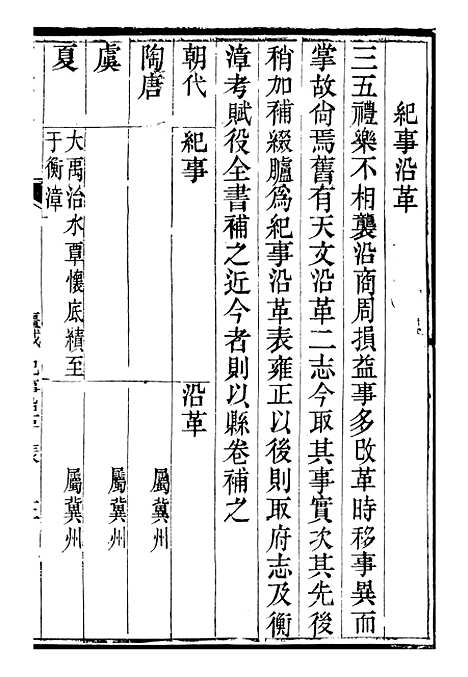 紀事沿革
三五禮樂不相襲沿商周損益事多改革時移事異而
掌故尙焉舊有天文沿革二志今取其事實次其先後
稍加補綴臚爲紀事沿革表雍正以後則取府志及衡
漳考賦役全書補之近今者則以縣卷補之
朝代 紀事 沿革
陶唐 屬冀州
虞 屬冀州
夏 大禹治水覃懷底績至
于衡漳 屬冀州
紀事沿革表